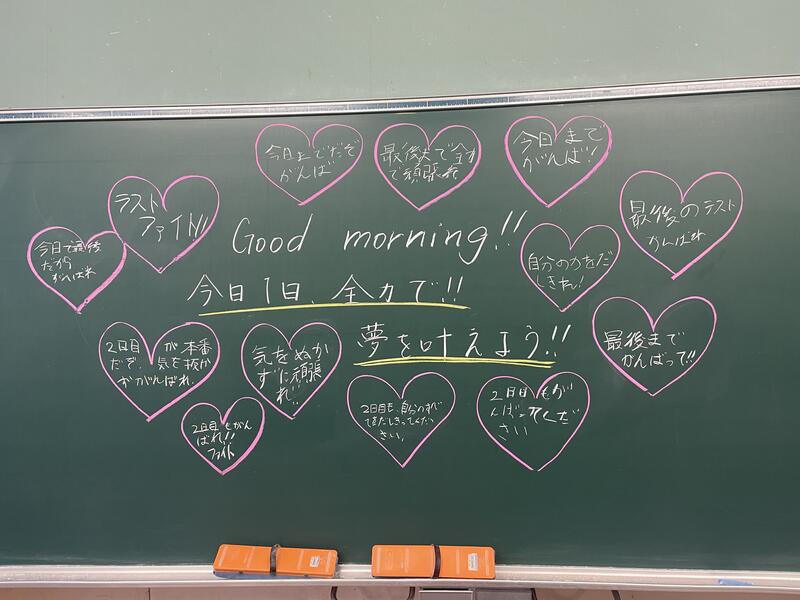 今日までだぞ
がんば
最後まで全力
で頑張れ
今日まで
がんば!
ラスト
ファイト!!
最後のテスト
がんばれ
今日で最後
だから
がんばれ
Good morning!!
自分の力をだ
しきれ!
今日1日、全力で!!
夢を叶えよう!!
2日目が本番
だぞ、気を抜か
ずがんばれ。
気をぬか
ずに頑張
れ!!
最後まで
がんばって!!
2日目もがん
ばれ!!
ファイト
2日目も、自分のすべ
てをだしきってくだ
さい。
2日目もが
んばってくだ
さい